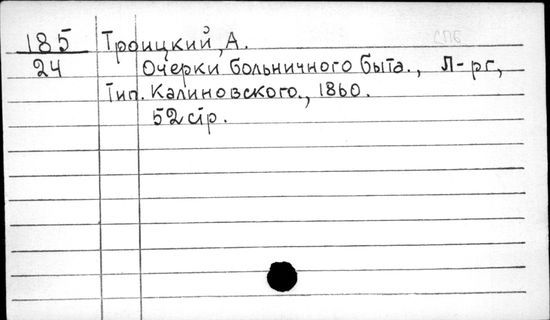 185 Троицкий, А. СПБ
24 Очерки больничного быта., Л-рг,
Тип. Калиновского., 1860.
52 стр.